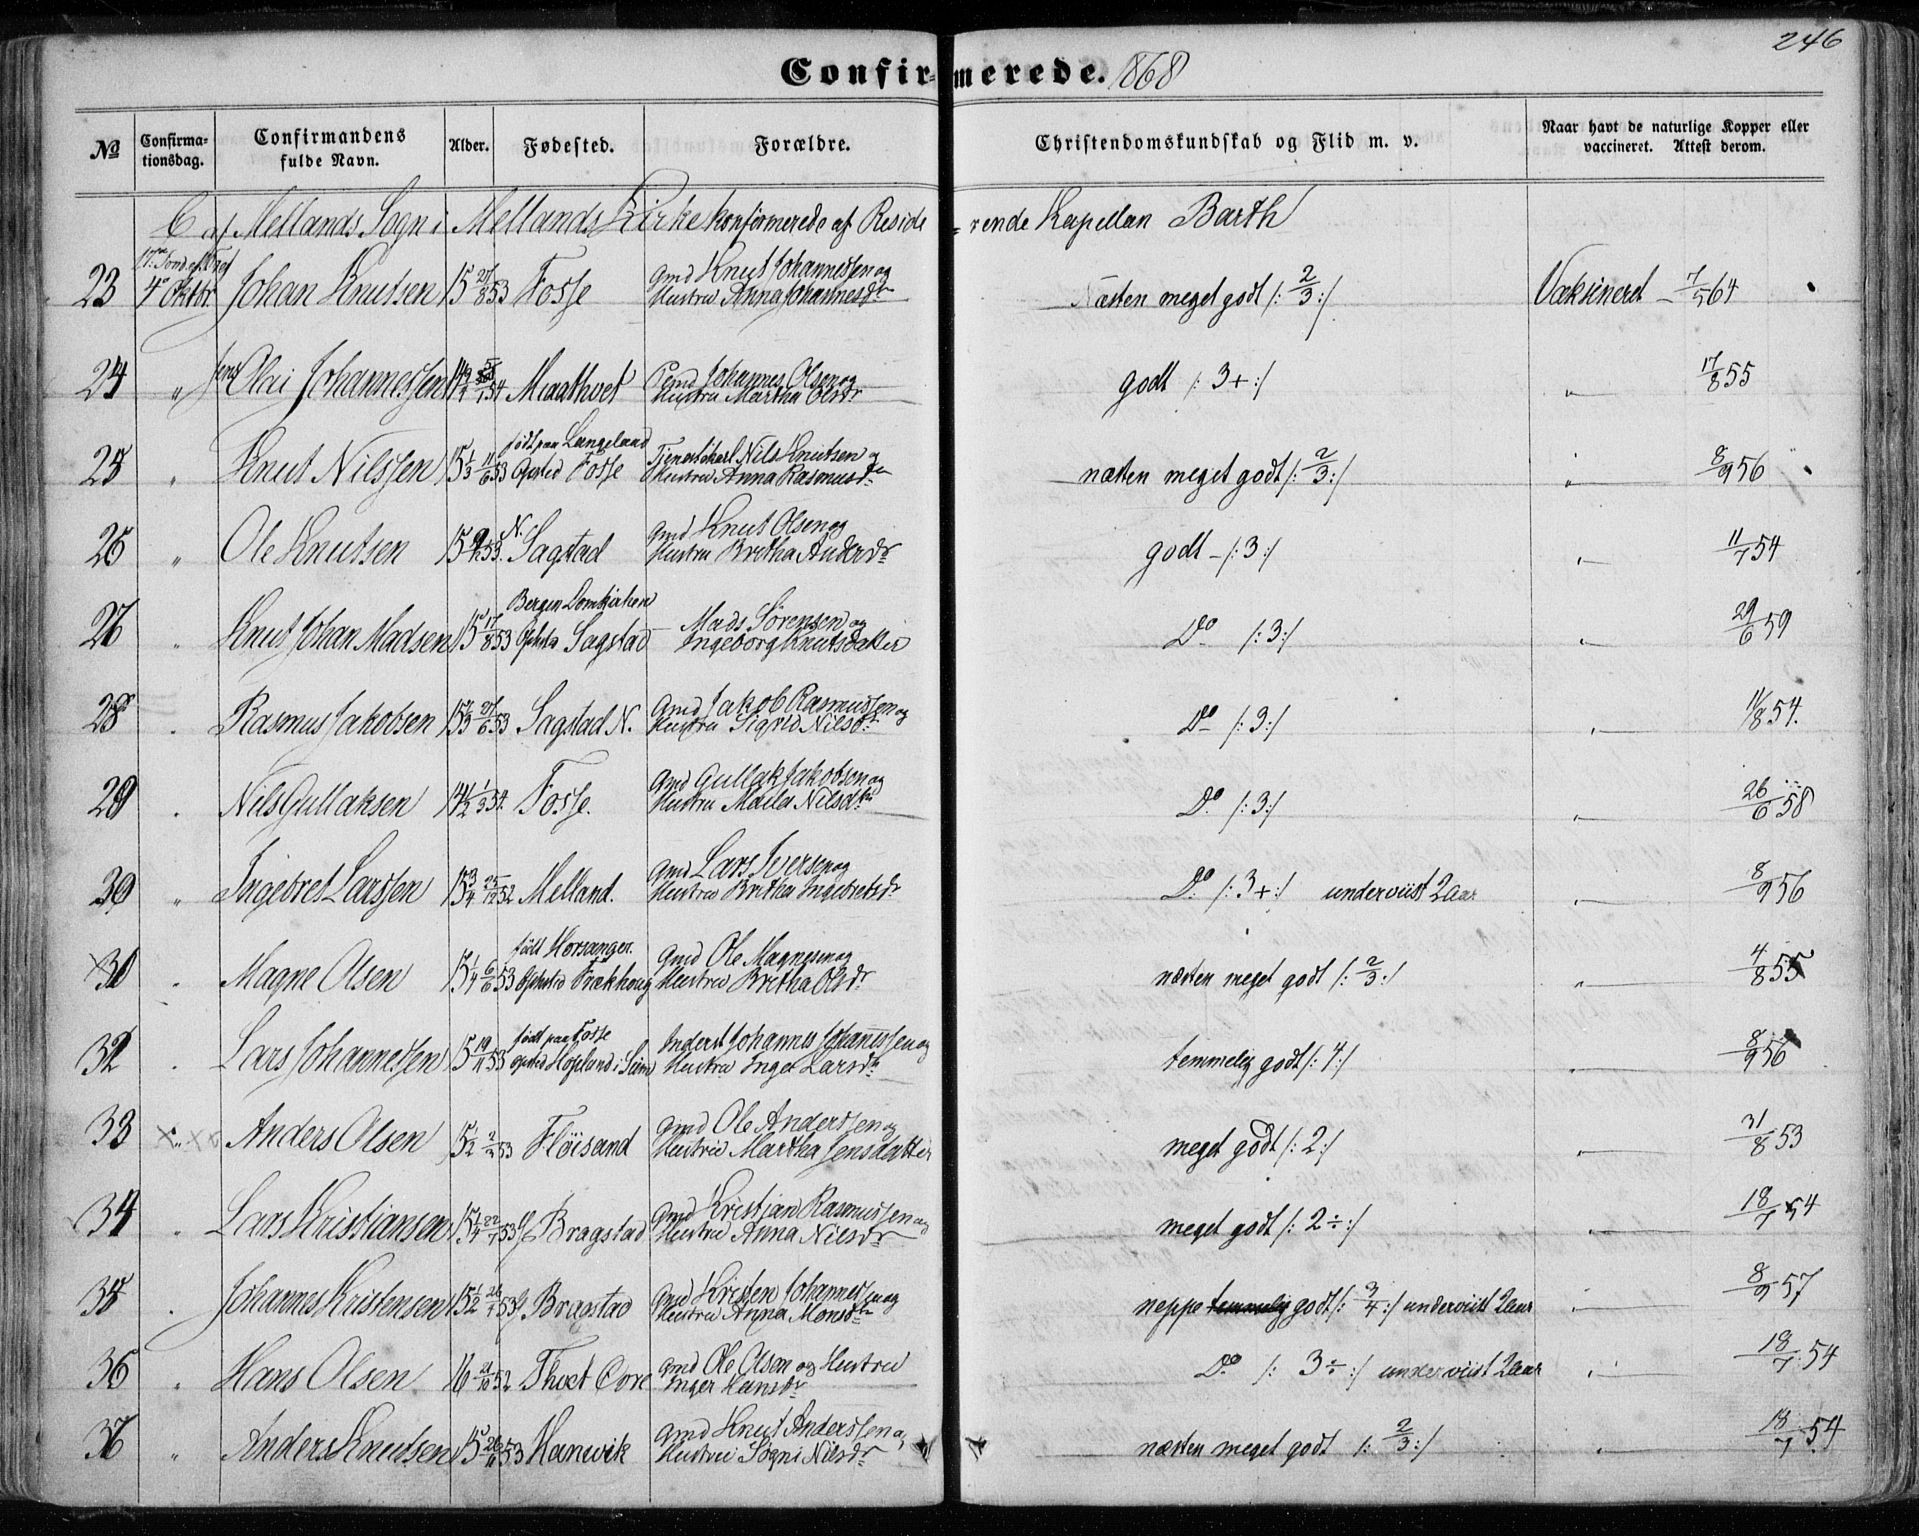 246
Confirmerede. 1868
№ Confirmationsdag. Confirmandens fulde Navn. Alder. Fødested. Forældre. Christendomskundskab og Flid m. v. Naar havt de naturlige Kopper eller vaccineret. Attest derom.
C af Mellands Sogn i Mellands Kirke konfirmerede af Residerende Kapellan Barth
17de Sond. ef. Tref
23 4de Oktbr. Johan Knutsen 15 27/8 53 Fosse Gmd Knut Johannessen og Hustru Anna Johannesdr Næsten meget godt /: 2/3 :/ Vaksineret 7/5 64
24 " Jens Olai Johannessen 54 Maathvet Pmd Johannes Olsen og Hustru Martha Olsdr godt /: 3+ :/ " 17/8 55
25 " Knut Nilssen 15 1/3 11/6 53 født paa Langeland Opsted Fosse Tjenestekarl Nils Knutsen og Hustru Anna Rasmusdr næsten meget godt /: 2/3 :/ " 8/9 56
26 " Ole Knutsen 15 53 N. Sagstad Gmd Knut Olsen og Hustru Britha Andersdr godt - /: 3 :/ " 11/7 54
27 " Knut Johan Madsen 15 17/8 53 Bergen Domkirken Opsted Sagstad Mads Sørensen og Ingeborg Knutsdatter Do /: 3 :/ " 29/6 59
28 " Rasmus Jakobsen 15 1/3 27/6 53 Sagstad N. Gmd Jakob Rasmussen og Hustru Sigrid Nilsdr Do /: 3 :/ " 11/8 54.
29 " Nils Gullaksen 14 1/2 1/3 54. Fosse. Gmd Gullak Jakobsen og Hustru Marta Nilsdr Do /: 3 :/ " 26/6 58
30 " Ingebret Larssen 15 3/4 25/12 52 Melland. Gmd Lars Iversen og Hustru Britha Ingebretsdr Do /: 3+ :/ underviist 2 aar " 8/9 56
31 " Magne Olsen 15 1/4 6/6 53 født Horsanger. Opsted Trækhoug Gmd Ole Magnesen og Hustru Britha Olsdr næsten meget godt /: 2/3 :/ " 4/8 55
32 " Lars Johannessen 15 19/11 53 født paa Fosse opsted Hopland i Seim Inderst Johannes Johanessen og Hustru Inger Larsdr temmelig godt /: 4 :/ " 8/9 56
33 " Anders Olsen 15 1/2 53 Fløisand Gmd Ole Anderssen og Hustru Martha Jensdatter meget godt /: 2 :/ " 31/8 53
34 " Lars Kristiansen 15 1/4 22/7 53 Bragstad Gmd Kristjan Rasmussen og Hustru Anna Nilsdr meget godt /: 2÷ :/ " 18/7 54
35 " Johannes Kristensen 15 1/2 53 Bragstad Gmd Kristen Johannessen og Hustru Anna Monsdr neppe temmelig godt /: 3/4 :/ underviist 2 aar " 8/9 57
36 " Hans Olsen 16 21/10 52 Thvet Øvre Gmd Ole Olsen og Hustru Inger Hansdr Do /: 3÷ :/ underviist 2 aar " 18/7 54
37 " Anders Knutsen 15 26/11 53 Hanevik Gmd Knut Anderssen og Hustru Sogni Nilsdr næsten meget godt /: 2/3 :/ " 18/7 54